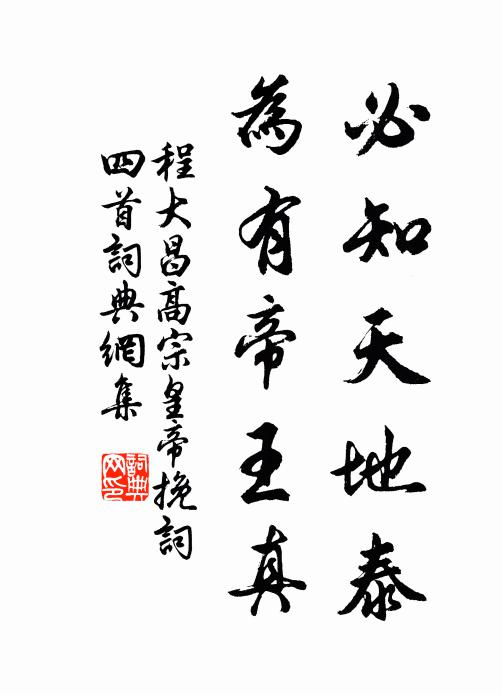 必知天地泰
為有帝王真
程大昌高宗皇帝挽詞
四首詞典網集
詞典
网印